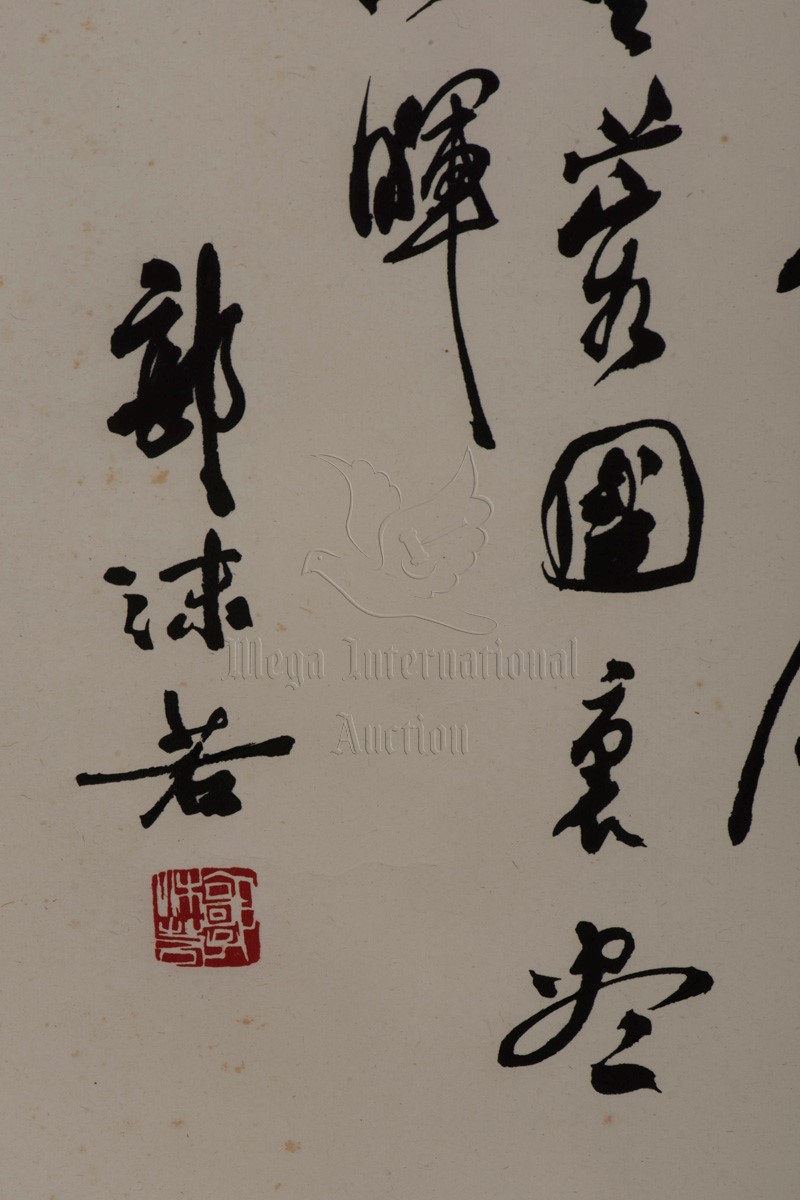 蓉國裏尽
暉
郭沫若
郭沫若
Mega International
Auction